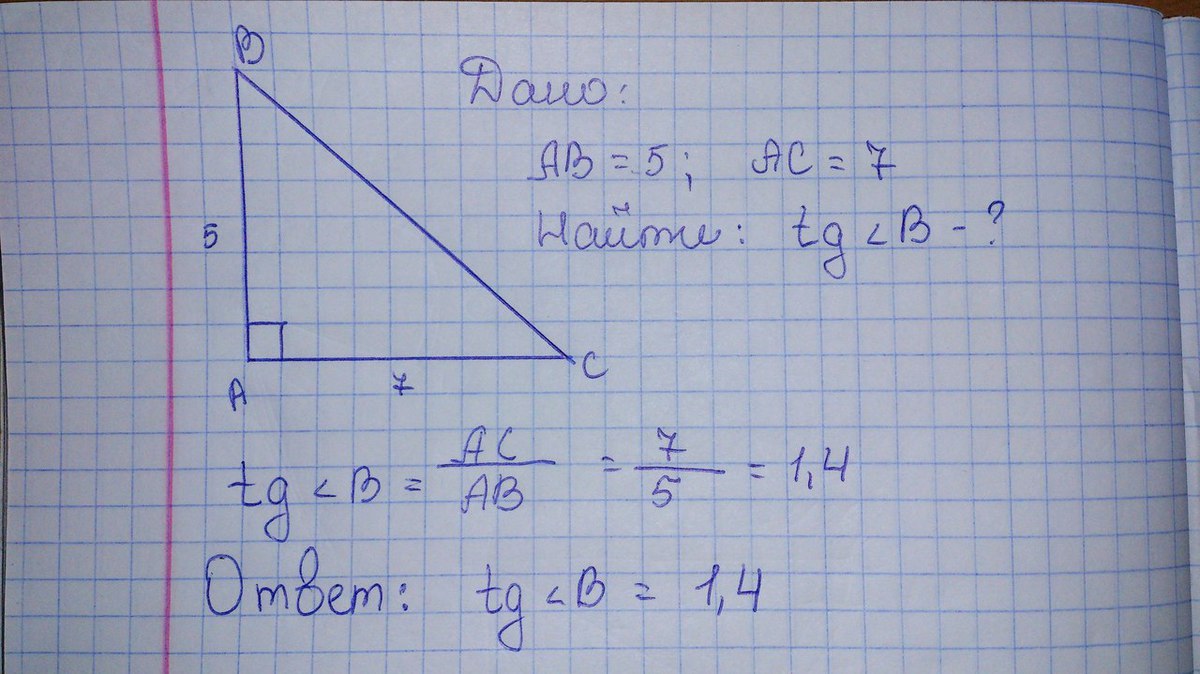 B
Дано:
AB = 5; AC = 7
Найти: tg ∠B - ?
5
A
7
C
tg ∠B = AC / AB = 7 / 5 = 1,4
Ответ: tg ∠B = 1,4